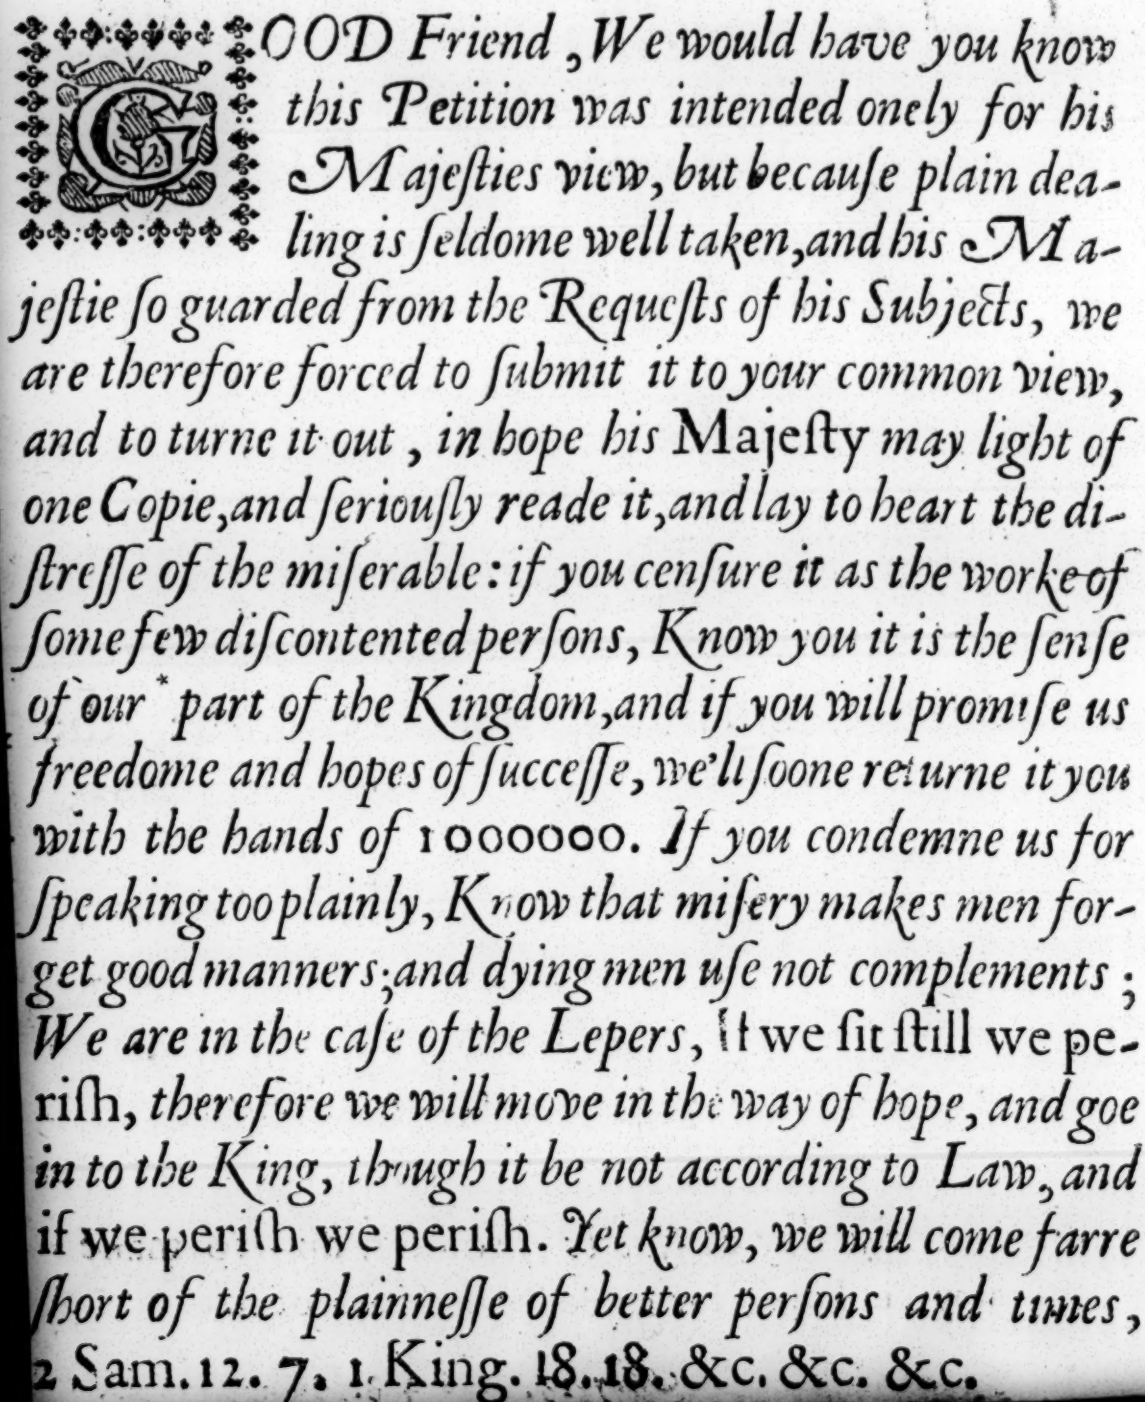 GOOD Friend, We would have you know
this Petition was intended onely for his
Majeſties view, but becauſe plain dea-
ling is ſeldome well taken, and his Ma-
jeſtie ſo guarded from the Requeſts of his Subjects, we
are therefore forced to ſubmit it to your common view,
and to turne it out, in hope his Majeſty may light of
one Copie, and ſeriouſly reade it, and lay to heart the di-
ſtreſſe of the miſerable: if you cenſure it as the worke of
ſome few diſcontented perſons, Know you it is the ſenſe
of our * part of the Kingdom, and if you will promiſe us
freedome and hopes of ſucceſſe, we'll ſoone returne it you
with the hands of 1000000. If you condemne us for
ſpeaking too plainly, Know that miſery makes men for-
get good manners; and dying men uſe not complements;
We are in the caſe of the Lepers, If we ſit ſtill we pe-
riſh, therefore we will move in the way of hope, and goe
in to the King, though it be not according to Law, and
if we periſh we periſh. Yet know, we will come farre
ſhort of the plainneſſe of better perſons and times,
2 Sam. 12. 7. 1. King. 18. 18. &c. &c. &c.